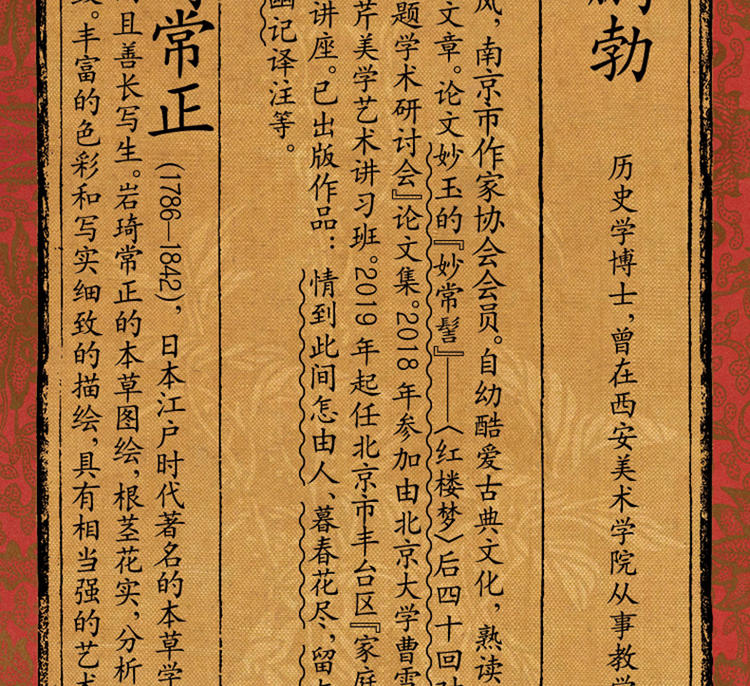 勃
历史学博士，曾在西安美术学院从事教学
风，南京市作家协会会员。自幼酷爱古典文化，熟读
文章。论文妙玉的『妙常髻』——〈红楼梦〉后四十回
题学术研讨会』论文集。2018年参加由北京大学曹雪
芹美学艺术讲习班。2019年起任北京市丰台区『家庭
讲座。已出版作品：情到此间怎由人、暮春花尽，留
幽记译注等。
常正
(1786—1842)，日本江户时代著名的本草学
且善长写生。岩琦常正的本草图绘，根茎花实，分析
丰富的色彩和写实细致的描绘，具有相当强的艺术